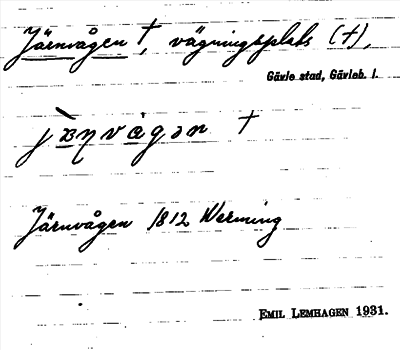 Järnvågen †, vägningsplats (†),
Gävle stad, Gävleb. l.
Järnvågen 1812 Werming
EMIL LEMHAGEN 1931.